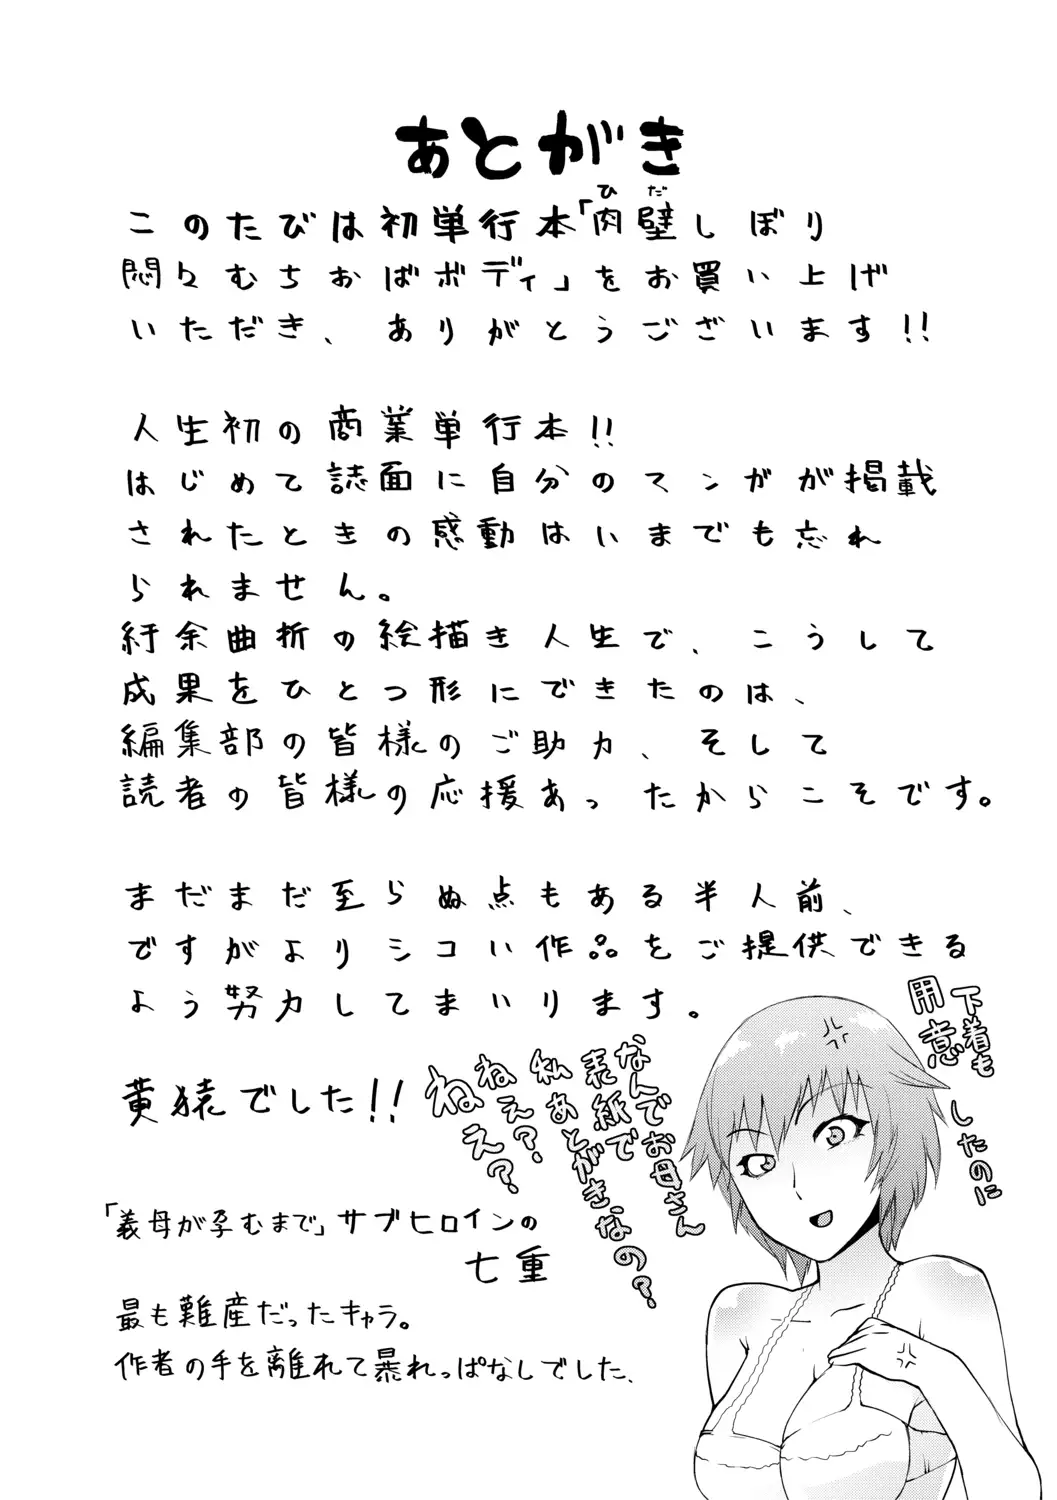 あとがき
このたびは初単行本「肉壁しぼり
ひだ
悶々むちおばボディ」をお買い上げ
いただき、ありがとうございます!!
人生初の商業単行本!!
はじめて誌面に自分のマンガが掲載
されたときの感動はいまでも忘れ
られません。
紆余曲折の絵描き人生で、こうして
成果をひとつ形にできたのは、
編集部の皆様のご助力、そして
読者の皆様の応援あったからこそです。
まだまだ至らぬ点もある半人前、
ですがよりシコい作品をご提供できる
よう努力してまいります。
黄猿でした!!
下着も
用意
したのに
なんでお母さん
表紙で
私あとがきなの?
ねぇえ?
ねえ?
「義母が孕むまで」サブヒロインの
七重
最も難産だったキャラ。
作者の手を離れて暴れっぱなしでした、